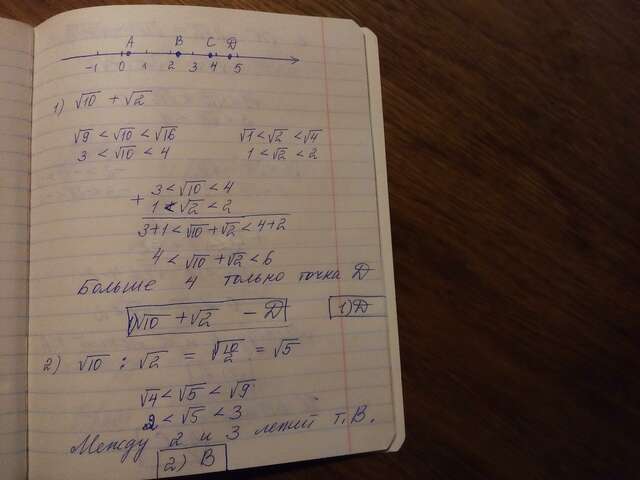 A B C D
-1 0 1 2 3 4 5
1) √10 + √2
√9 < √10 < √16 √1 < √2 < √4
3 < √10 < 4 1 < √2 < 2
+ 3 < √10 < 4
1 < √2 < 2
3+1 < √10 + √2 < 4+2
4 < √10 + √2 < 6
Больше 4 только точка D
1) √10 + √2 – D 1) D
2) √10 : √2 = √10/2 = √5
√4 < √5 < √9
2 < √5 < 3
Между 2 и 3 лежит т. B.
2) B